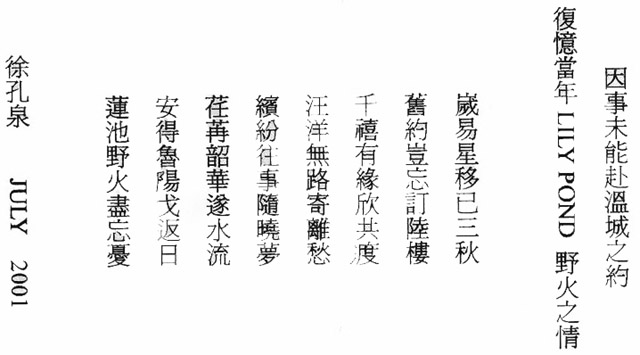 因事未能赴溫城之約
復憶當年 LILY POND 野火之情
嵗易星移已三秋
舊約豈忘訂陸樓
千禧有緣欣共渡
汪洋無路寄離愁
繽紛往事隨曉夢
荏苒韶華逐水流
安得魯陽戈返日
蓮池野火盡忘憂
徐孔泉 JULY 2001